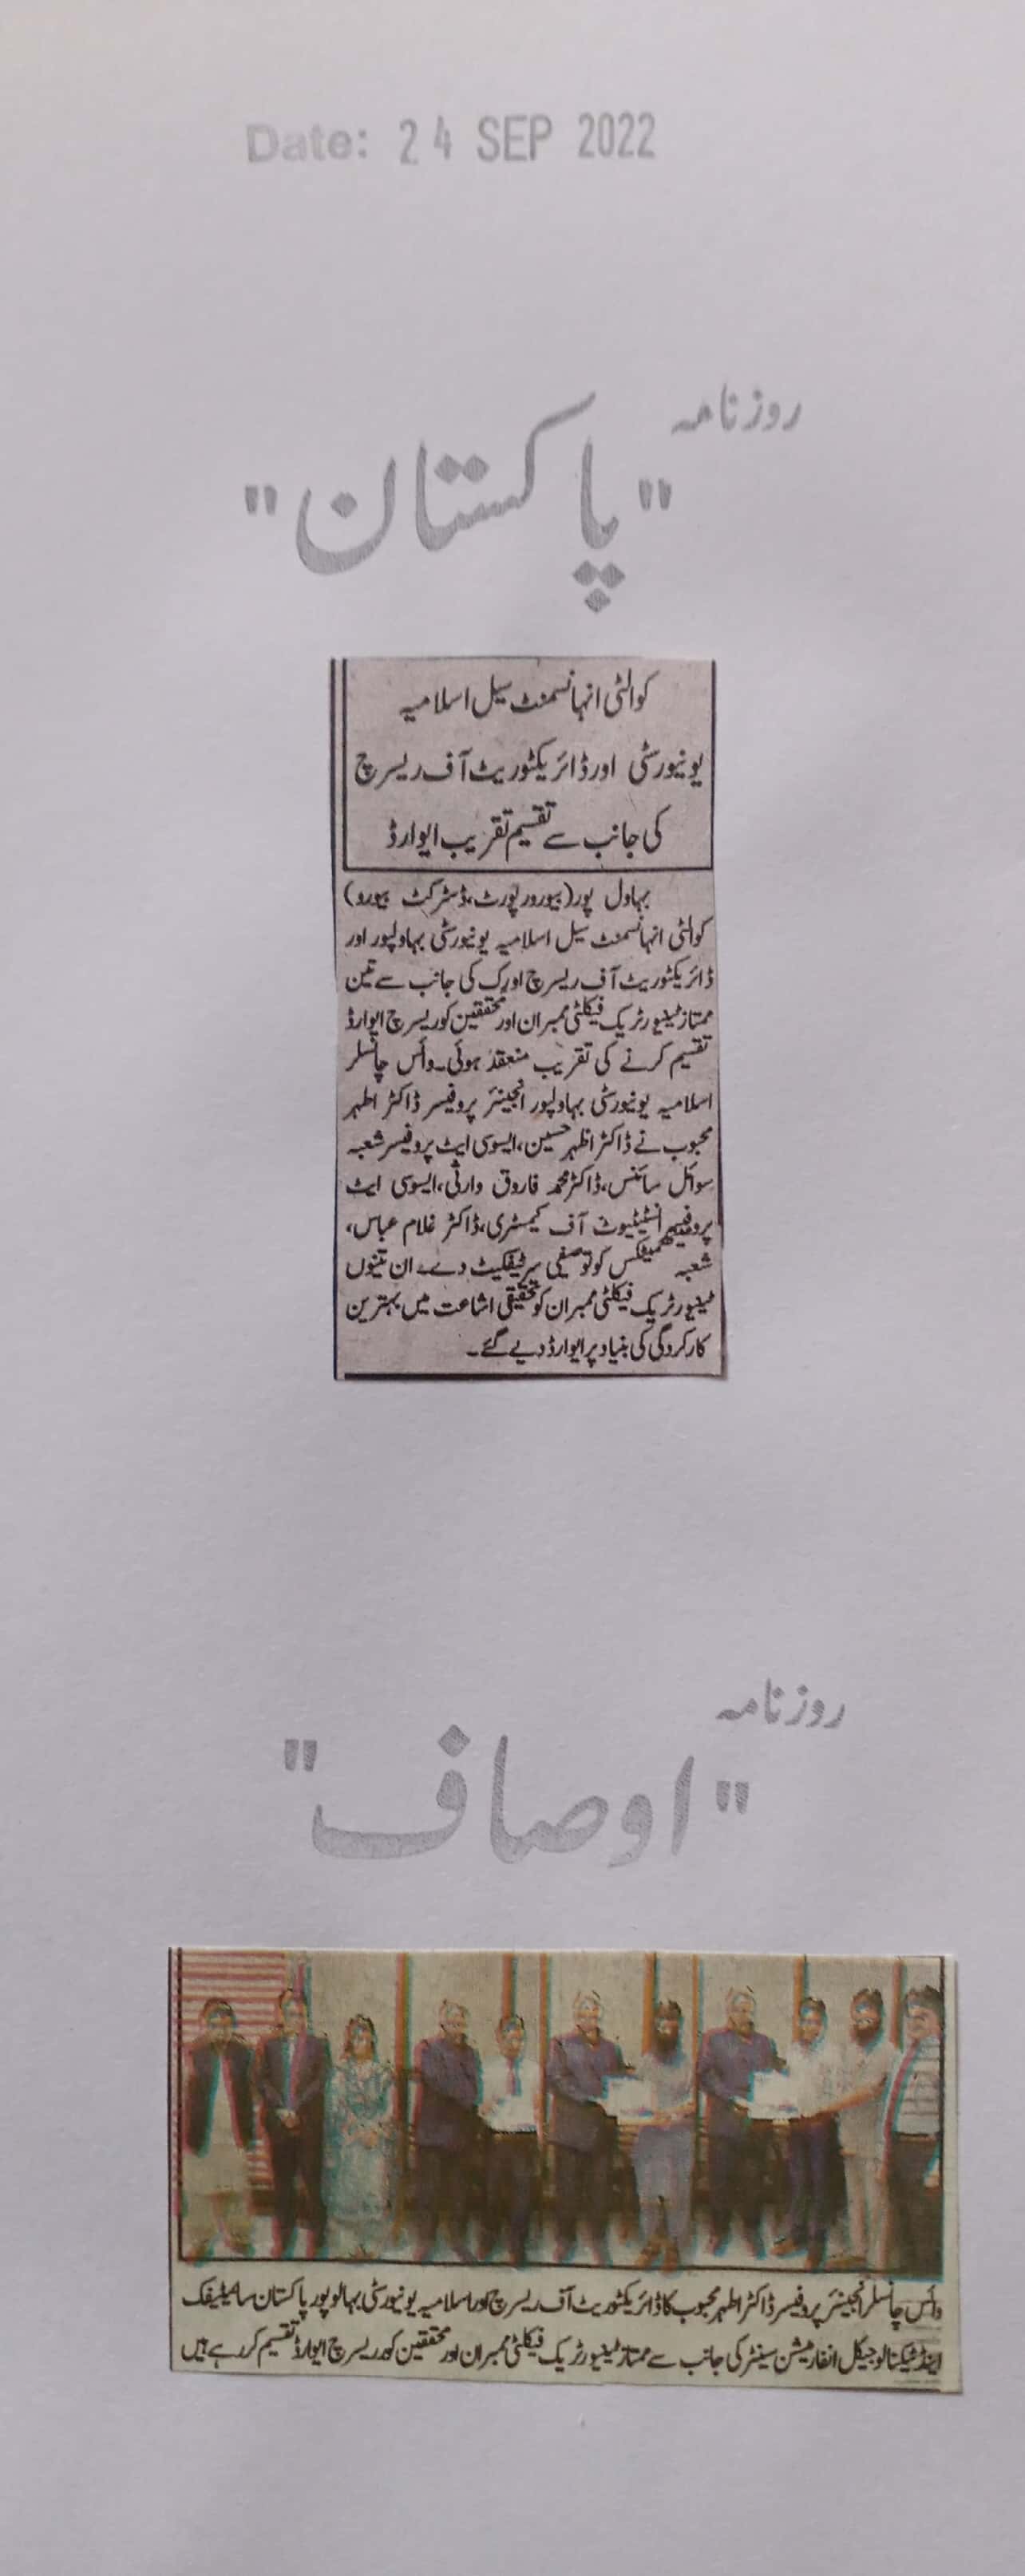 Date: 24 SEP 2022
روزنامہ
"پاکستان"
کوالٹی انہانسمنٹ سیل اسلامیہ
یونیورسٹی اورڈائریکٹوریٹ آف ریسرچ
کی جانب سے تقسیم تقریب ایوارڈ
بہاول پور(بیورورپورٹ،ڈسٹرکٹ بیورو)
کوالٹی انہانسمنٹ سیل اسلامیہ یونیورسٹی بہاولپور اور
ڈائریکٹوریٹ آف ریسرچ اورک کی جانب سے تین
ممتاز ٹینیورٹریک فیکلٹی ممبران اور محققین کوریسرچ ایوارڈ
تقسیم کرنے کی تقریب منعقد ہوئی۔وائس چانسلر
اسلامیہ یونیورسٹی بہاولپور انجینئر پروفیسر ڈاکٹر اطہر
محبوب نے ڈاکٹر اظہر حسین،ایسوسی ایٹ پروفیسر شعبہ
سوائل سائنس،ڈاکٹر محمد فاروق وارثی،ایسوسی ایٹ
پروفیسر انسٹیٹیوٹ آف کیمسٹری،ڈاکٹر غلام عباس،
شعبہ میتھمیٹکس کو توصیفی سرٹیفکیٹ دیے۔ان تینوں
ٹینیورٹریک فیکلٹی ممبران کو تحقیقی اشاعت میں بہترین
کارکردگی کی بنیاد پر ایوارڈ دیے گئے۔
روزنامہ
"اوصاف"
وائس چانسلر انجینئر پروفیسر ڈاکٹر اطہر محبوب کا ڈائریکٹوریٹ آف ریسرچ اور اسلامیہ یونیورسٹی بہالوپور پاکستان سائینٹیفک
اینڈ ٹیکنالوجیکل انفارمیشن سینٹر کی جانب سے ممتاز ٹینیورٹریک فیکلٹی ممبران اور محققین کو ریسرچ ایوارڈ تقسیم کر رہے ہیں